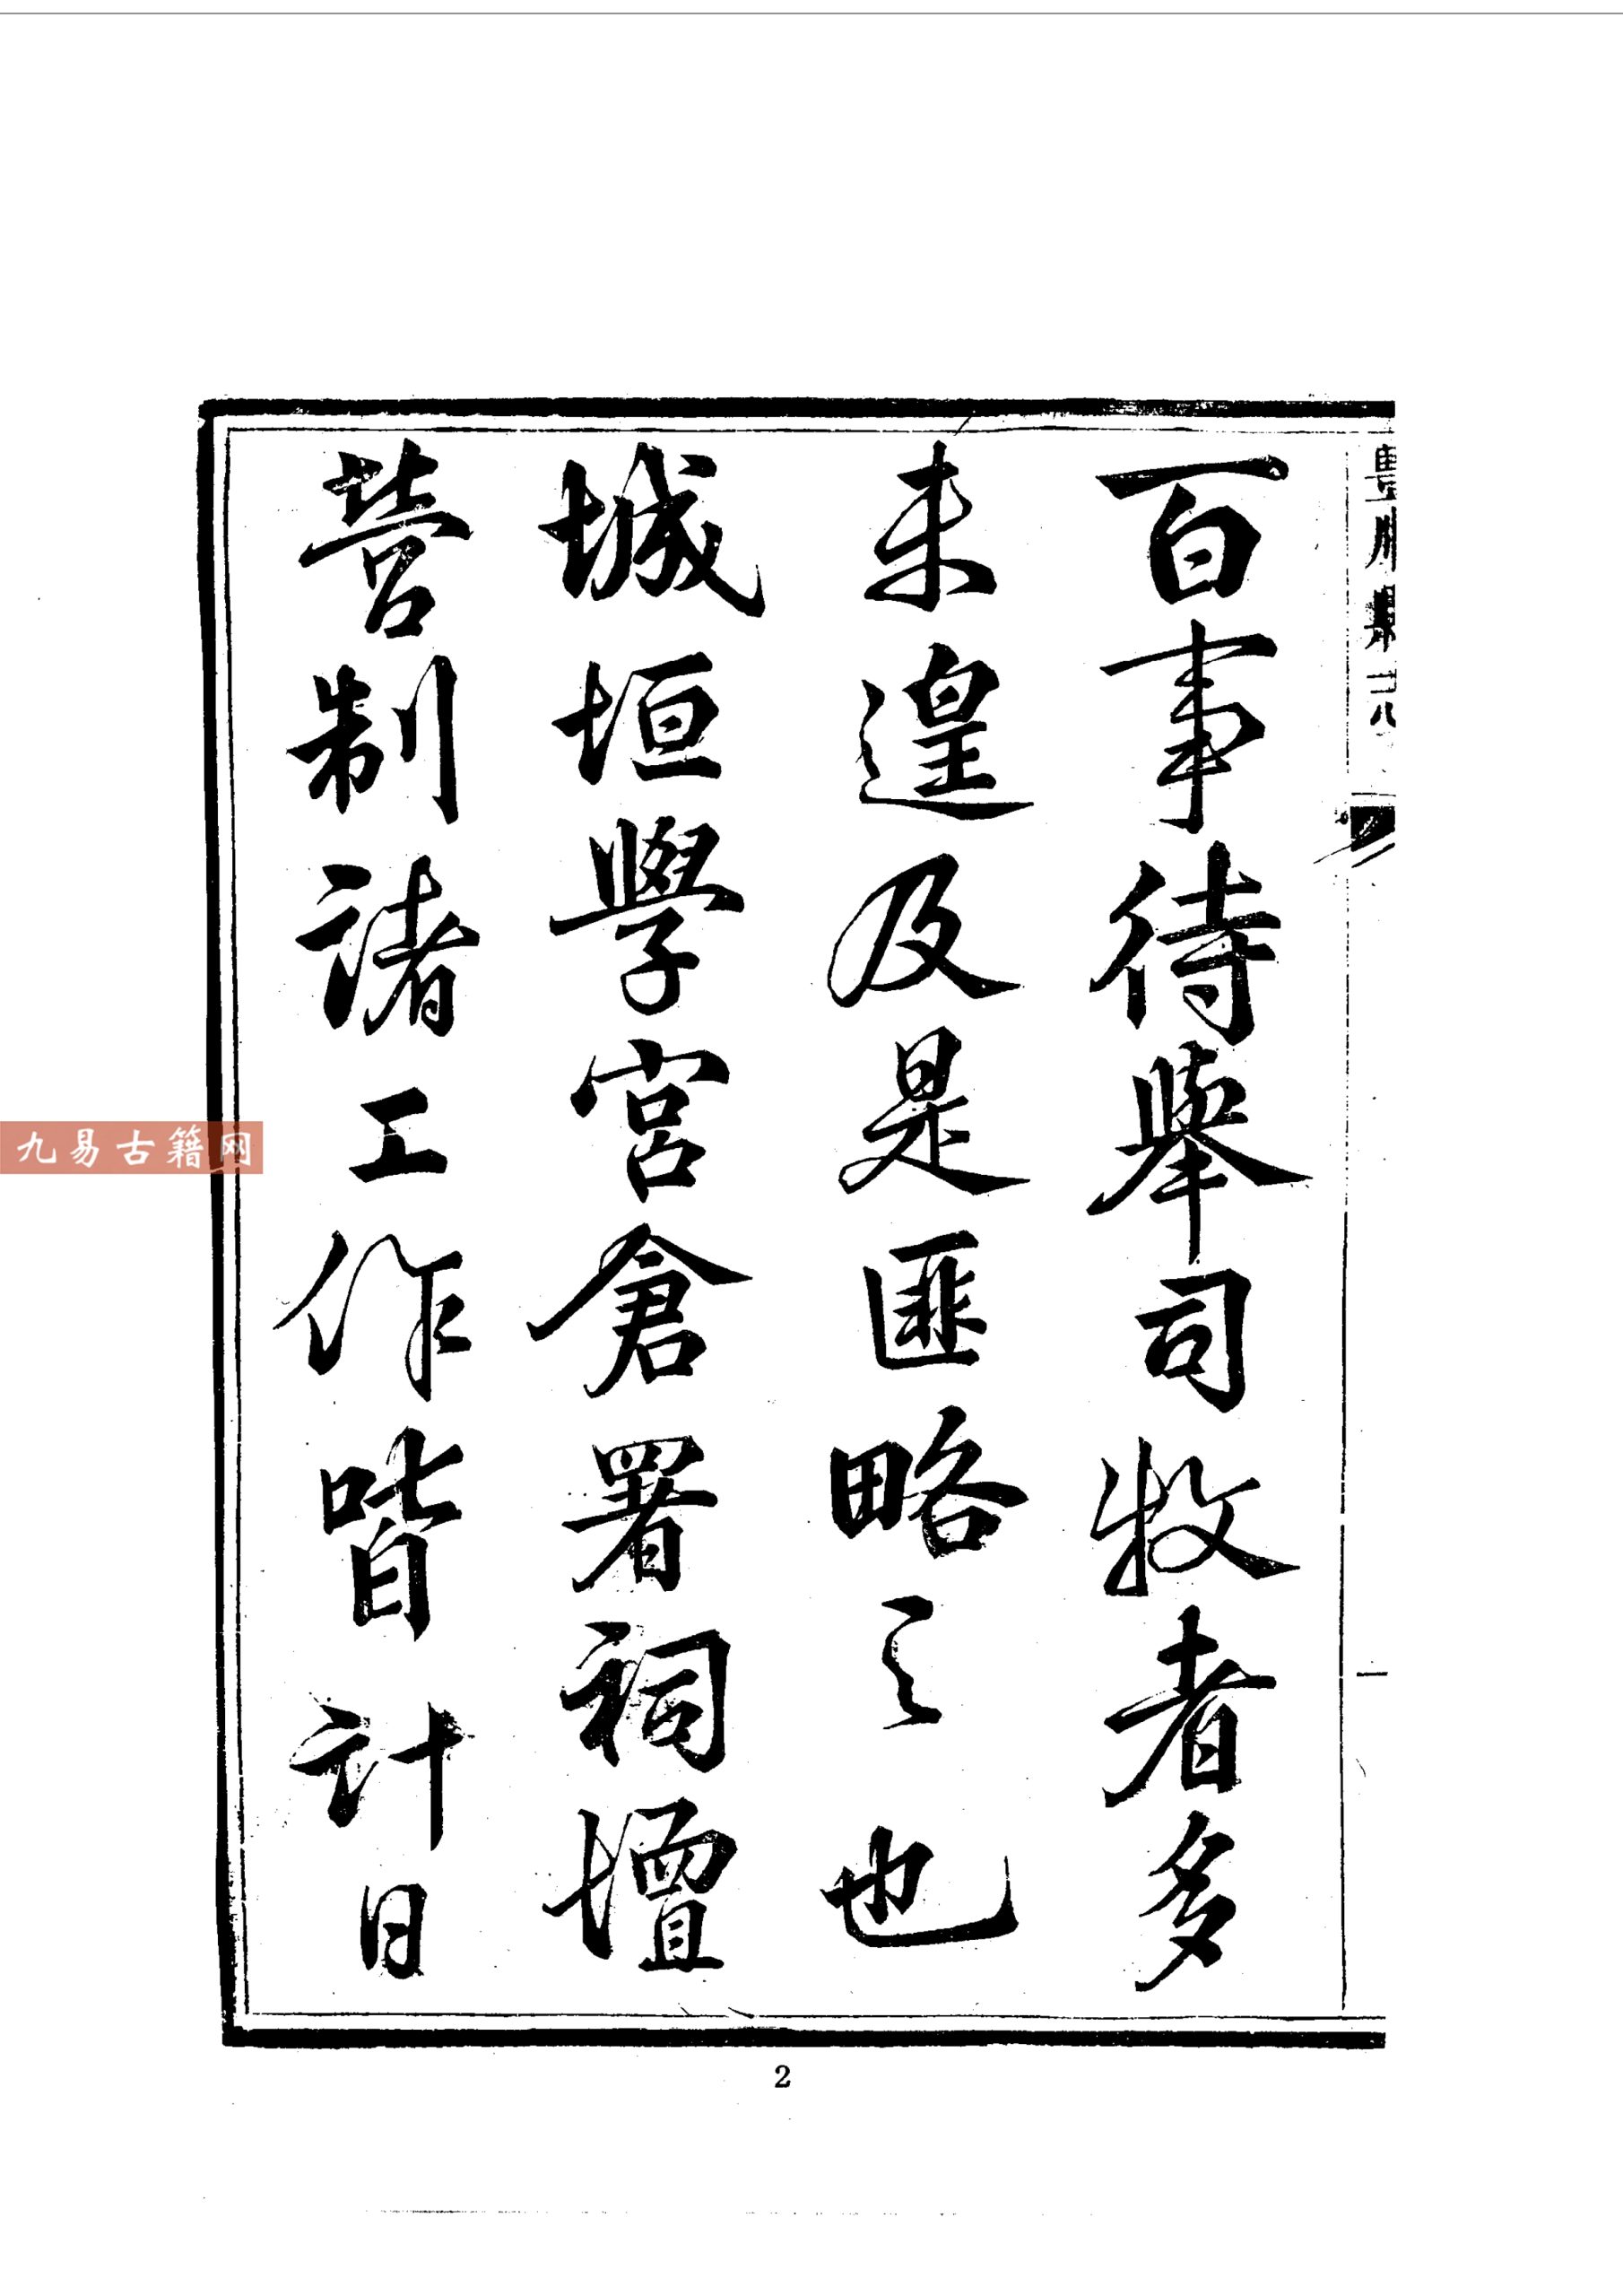 百事待舉司牧者多
未遑及是匪略之也
城垣學宮倉署祠壇
營制諸工作皆計日
一
2
九易古籍网